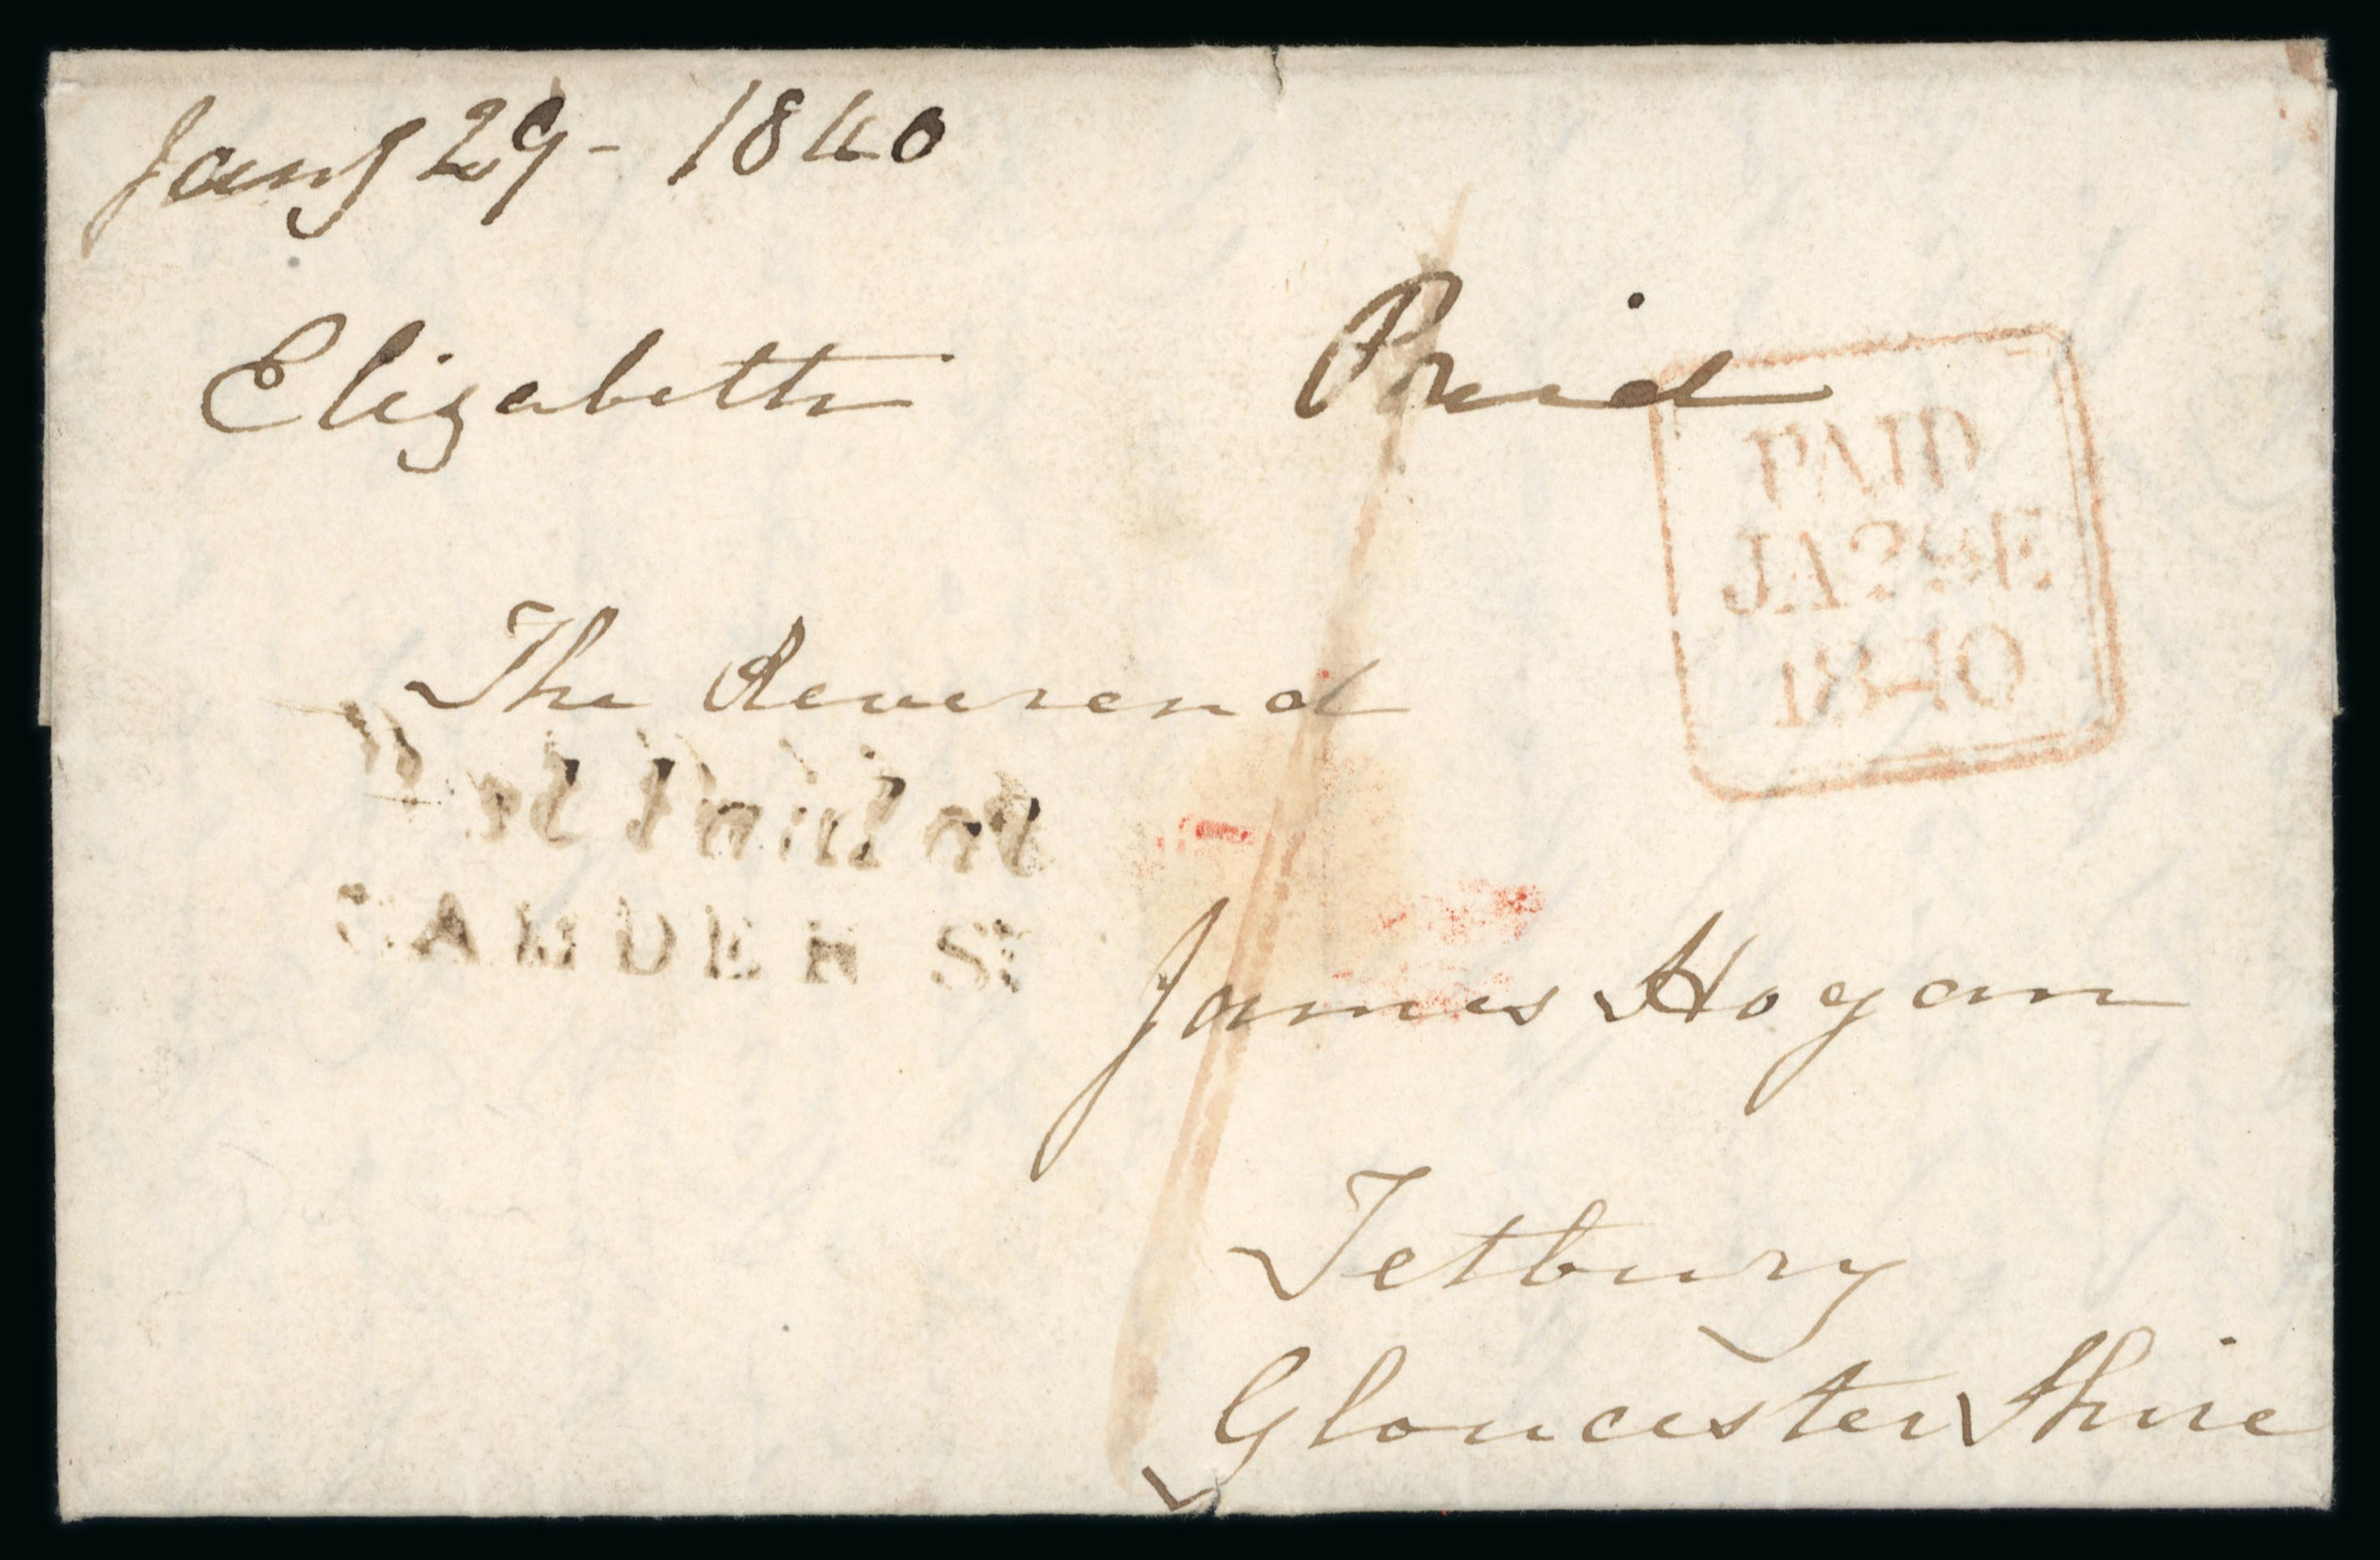 Jany 29 - 1840
Elizabeth
Paid
PAID
JA 29 E
1840
The Reverend
Not Paid at
CAMDEN St
James Hogan
Tetbury
Gloucester Shire